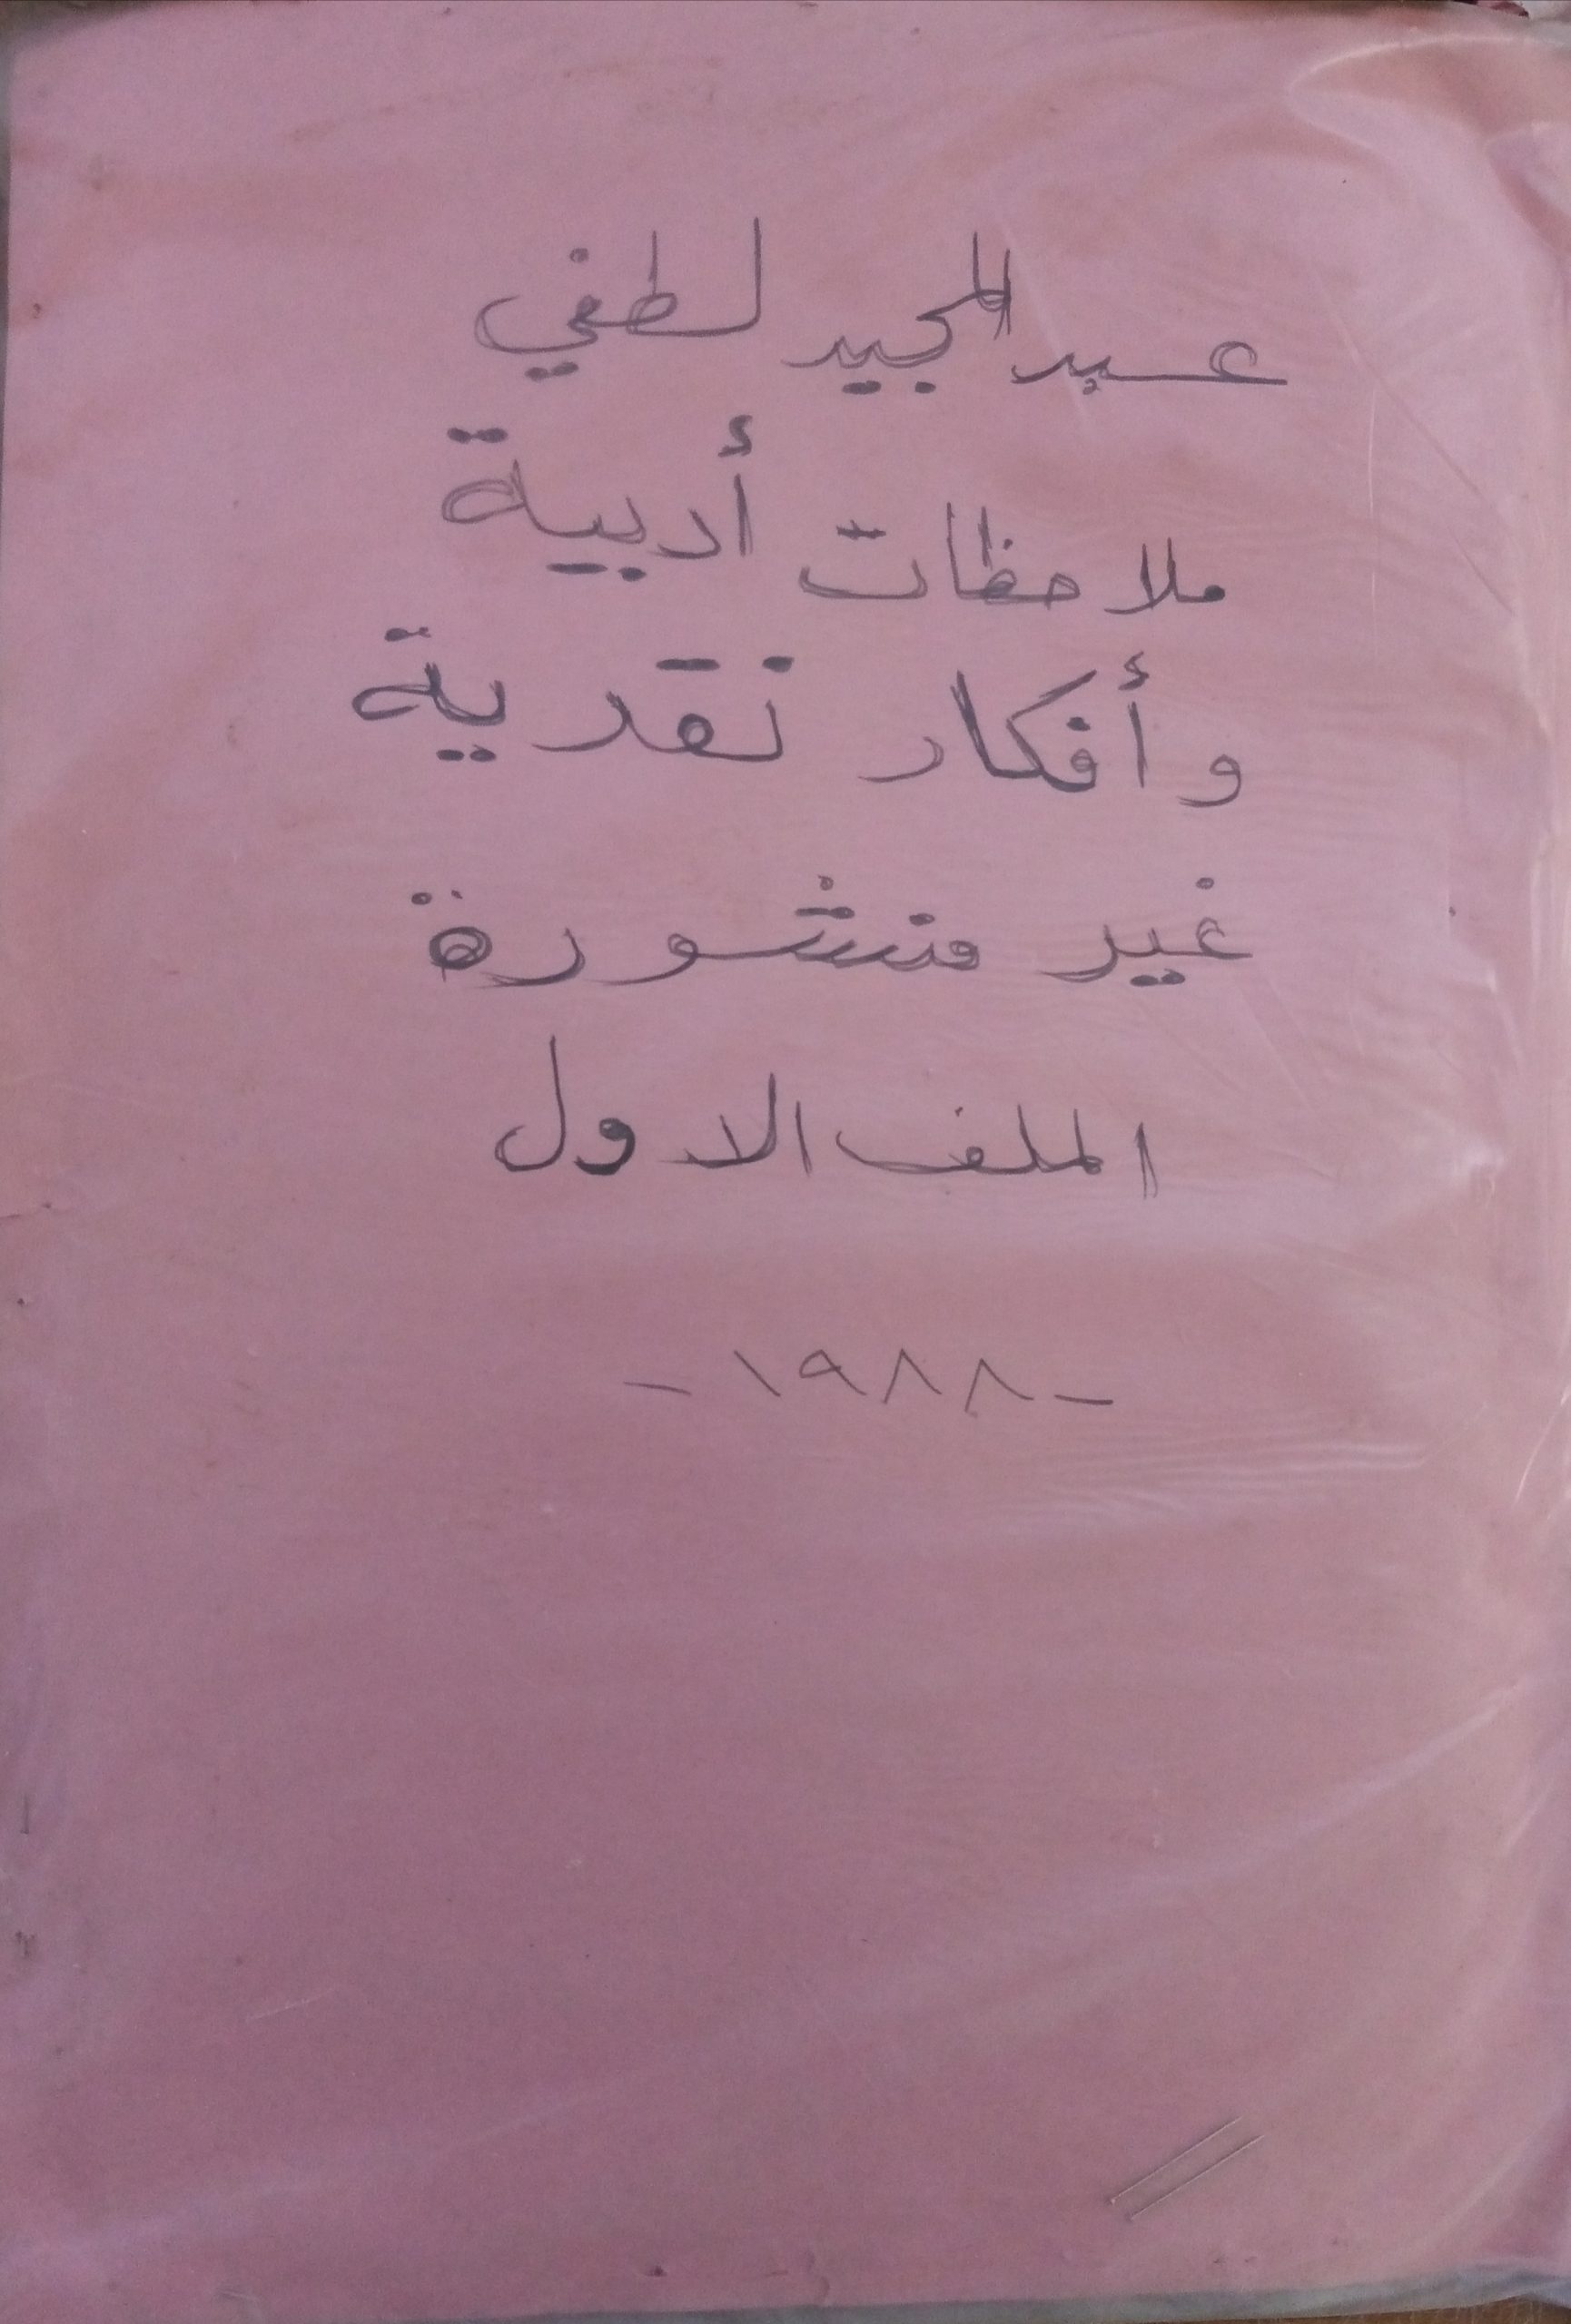 عبد المجيد لطفي
ملاحظات أدبية
وأفكار نقدية
غير منشورة
الملف الاول
- ١٩٨٨ -